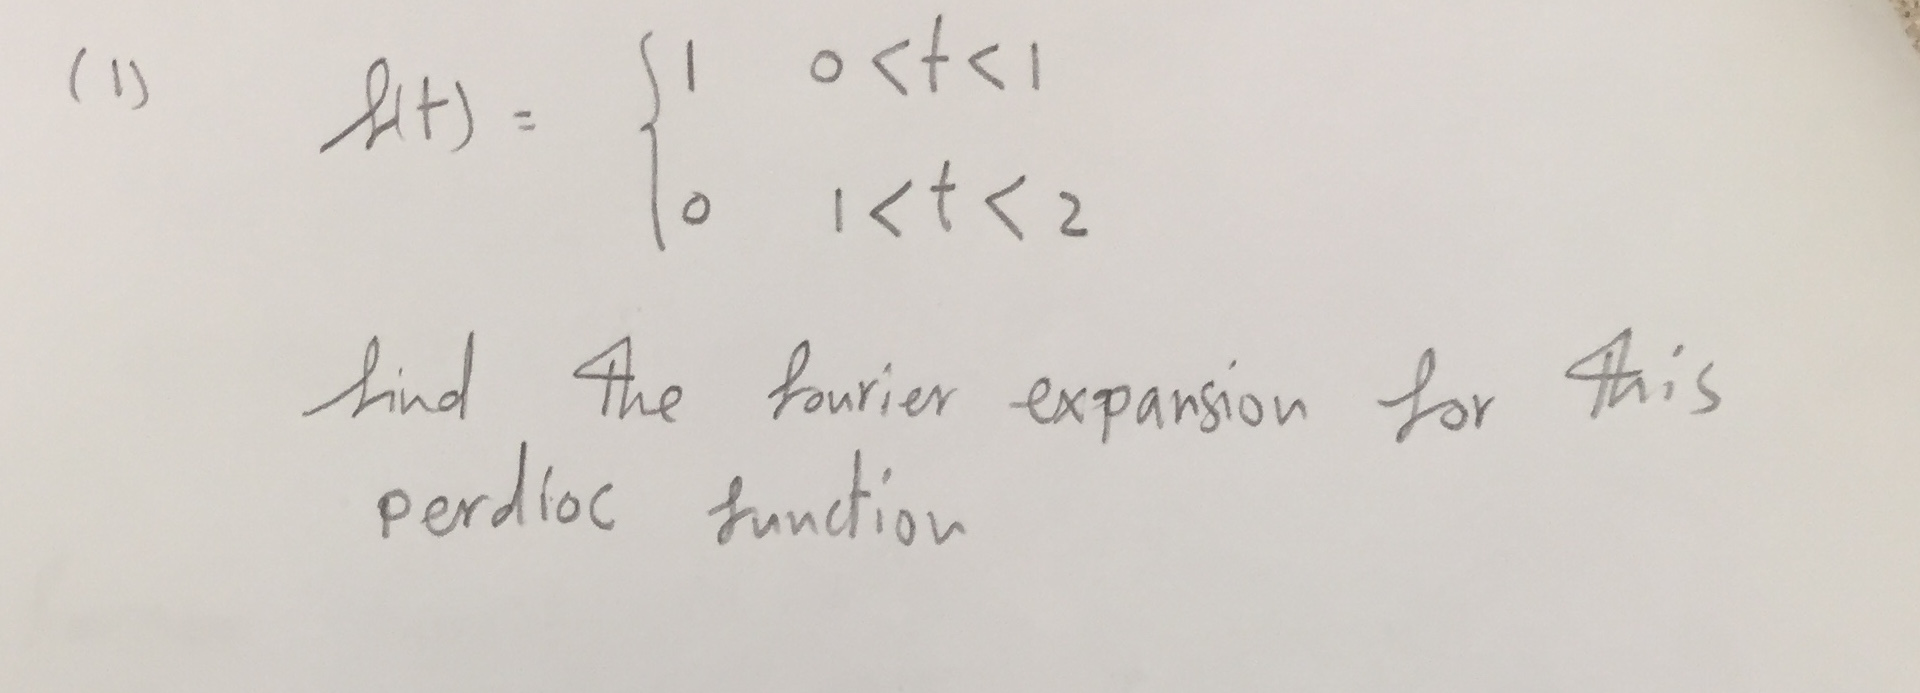 (1) f(t) = { 1 0<t<1
0 1<t<2
find the fourier expansion for this
perdioc function